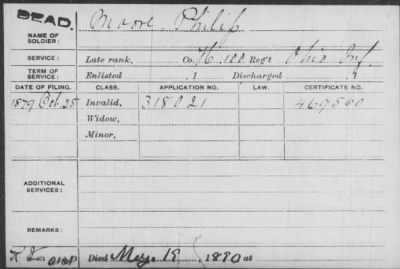 DEAD.
NAME OF SOLDIER: Moore, Philip
SERVICE: Late rank, Co. H, 100 Reg't Ohio Inf.
TERM OF SERVICE: Enlisted , 1 Discharged , 1
DATE OF FILING. CLASS. APPLICATION NO. LAW. CERTIFICATE NO.
1879 Oct. 25 Invalid, 318021 469560
Widow,
Minor,
ADDITIONAL SERVICES:
REMARKS:
Died May 19, 1890 at